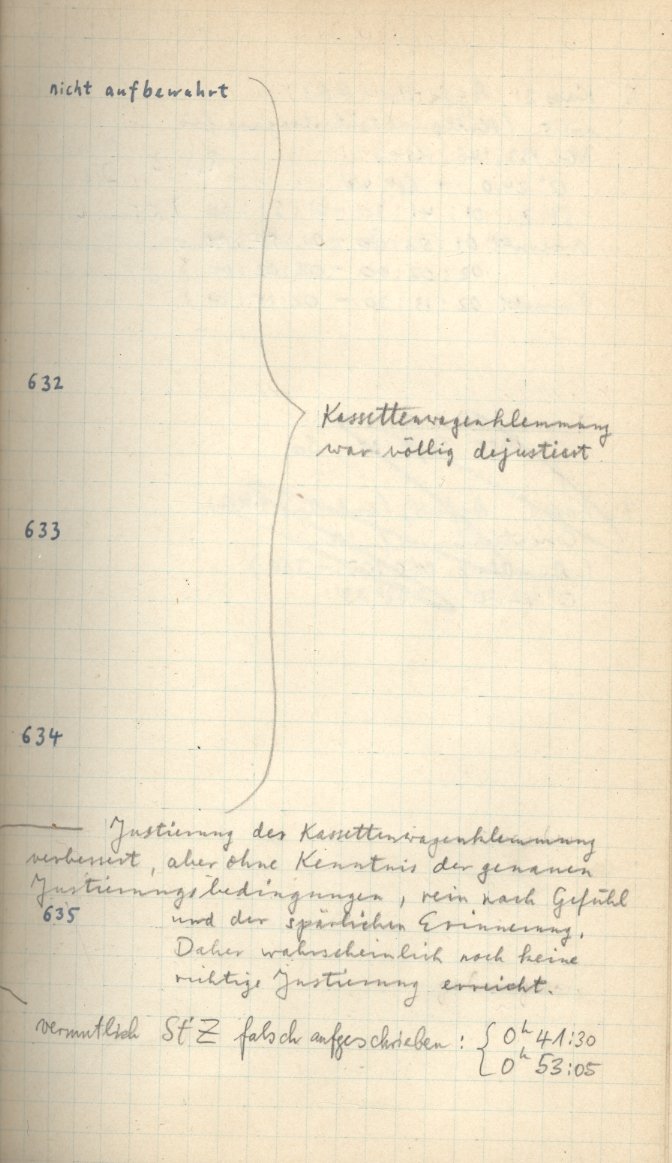 nicht aufbewahrt
632
Kassettenwagenklemmung
war völlig dejustiert
633
634
Justierung der Kassettenwagenklemmung
verbessert, aber ohne Kenntnis der genauen
Justierungsbedingungen, rein nach Gefühl
635 und der spärlichen Erinnerung.
Daher wahrscheinlich noch keine
richtige Justierung erreicht.
vermutlich StZ falsch aufgeschrieben: { 0h 41:30
0h 53:05